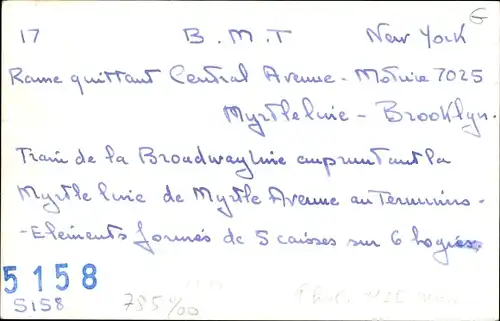 17 B.M.T New York G
Rame quittant Central Avenue - Motrice 7025
Myrtle line - Brooklyn.
Train de la Broadway line empruntant la
Myrtle line de Myrtle Avenue au Terminus -
- Eléments formés de 5 caisses sur 6 bogies
5158
5158 785 1/00